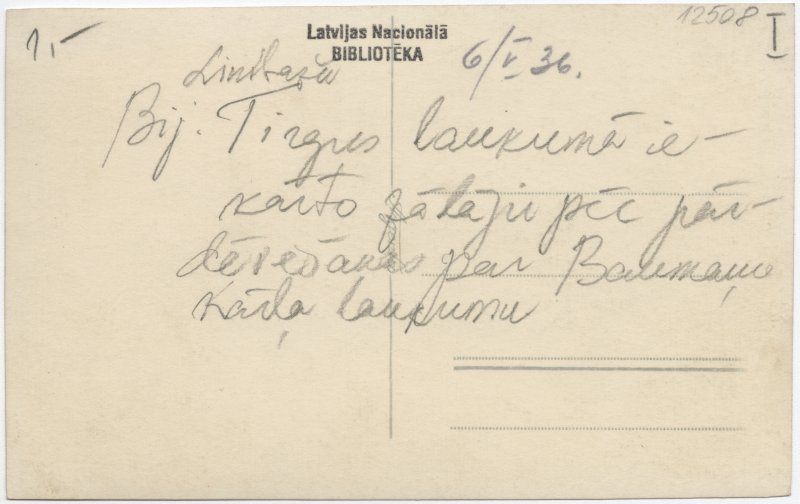 12508
I
1,-
Latvijas Nacionālā
BIBLIOTĒKA
6/V 36.
Limbažu
Bij. Tirgus laukumā ie-
kārto zālāju pēc pār-
dēvēšanas par Baumaņu
Kārļa laukumu